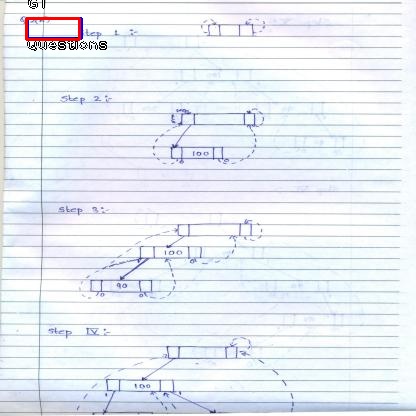 G1
Questions
Step 1 :-
Step 2 :-
100
Step 3 :-
100
90
Step IV :-
100